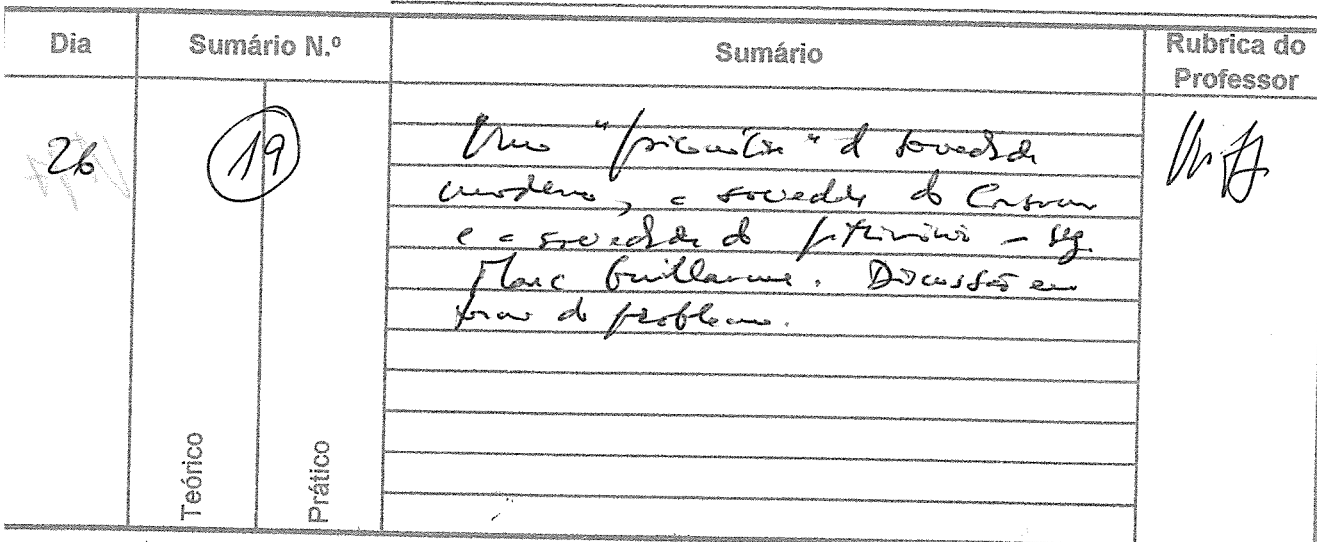 Dia
Sumário N.º
Sumário
Rubrica do
Professor
26
19
Uma "psicanálise" da sociedade
moderna, a sociedade do Consumo
e a sociedade do património - seg.
Marc Guillaume. Discussão em
torno do problema.
Teórico
Prático